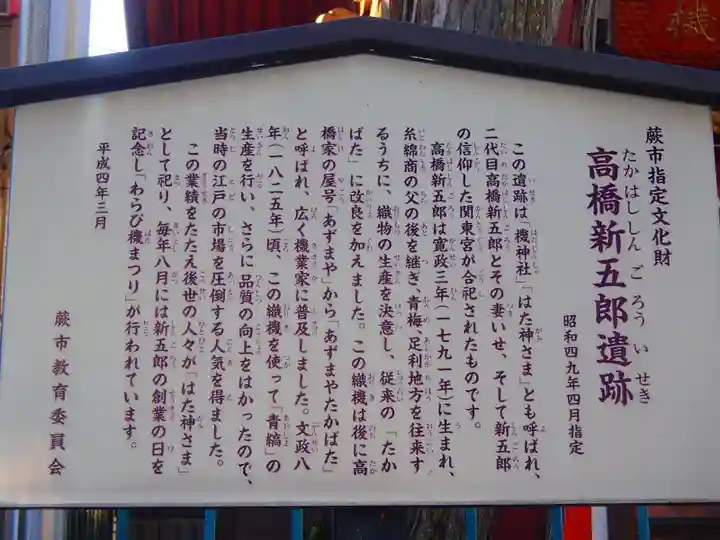 機
蕨市指定文化財
高橋新五郎遺跡
たかはししんごろういせき
昭和四九年四月指定
この遺跡は「機神社」「はた神さま」とも呼ばれ、
二代目高橋新五郎とその妻いせ、そして新五郎
の信仰した関東宮が合祀されたものです。
高橋新五郎は寛政三年(一七九一年)に生まれ、
糸綿商の父の後を継ぎ、青梅、足利地方を往来す
るうちに、織物の生産を決意し、従来の「たか
ばた」に改良を加えました。この織機は後に高
橋家の屋号「あずまや」から「あずまやたかばた」
と呼ばれ、広く機業家に普及しました。文政八
年(一八二五年)頃、この織機を使って「青縞」の
生産を行い、さらに品質の向上をはかったので、
当時の江戸の市場を圧倒する人気を得ました。
この業績をたたえ後世の人々が「はた神さま」
として祀り、毎年八月には新五郎の創業の日を
記念し「わらび機まつり」が行われています。
平成四年三月
蕨市教育委員会